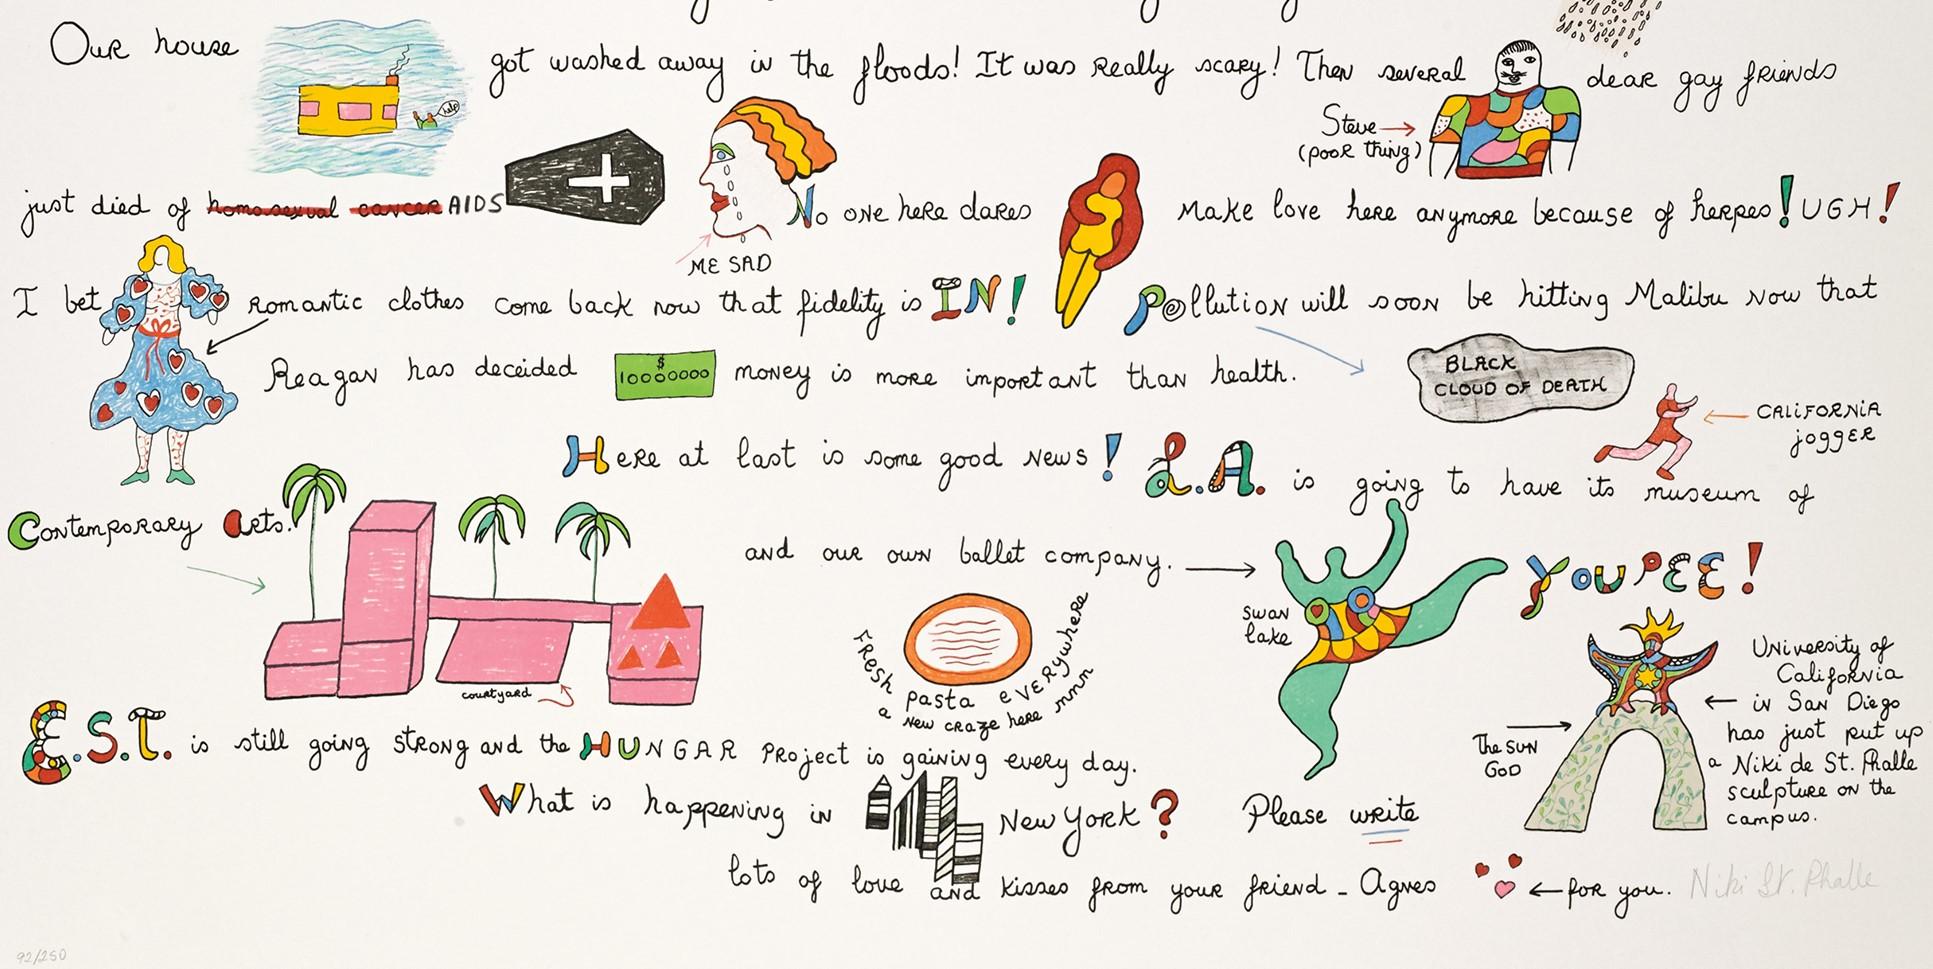 Our house got washed away in the floods! It was really scary! Then several dear gay friends
help
Steve
(poor thing)
just died of homosexual cancer AIDS No one here dares make love here anymore because of herpes! UGH!
ME SAD
I bet romantic clothes come back now that fidelity is IN! Pollution will soon be hitting Malibu now that
Reagan has deceided $ 10000000 money is more important than health.
BLACK
CLOUD OF DEATH
CALIFORNIA
jogger
Here at last is some good news! L.A. is going to have its museum of
Contemporary Arts. and our own ballet company. YOUPEE!
courtyard
Fresh pasta everywhere
a new craze here mmm
swan
lake
University of
California
in San Diego
has just put up
a Niki de St. Phalle
sculpture on the
campus.
The SUN
GOD
E.S.T. is still going strong and the HUNGAR Project is gaining every day.
What is happening in New York? Please write
lots of love and kisses from your friend - Agnes for you. Niki St. Phalle
92/250